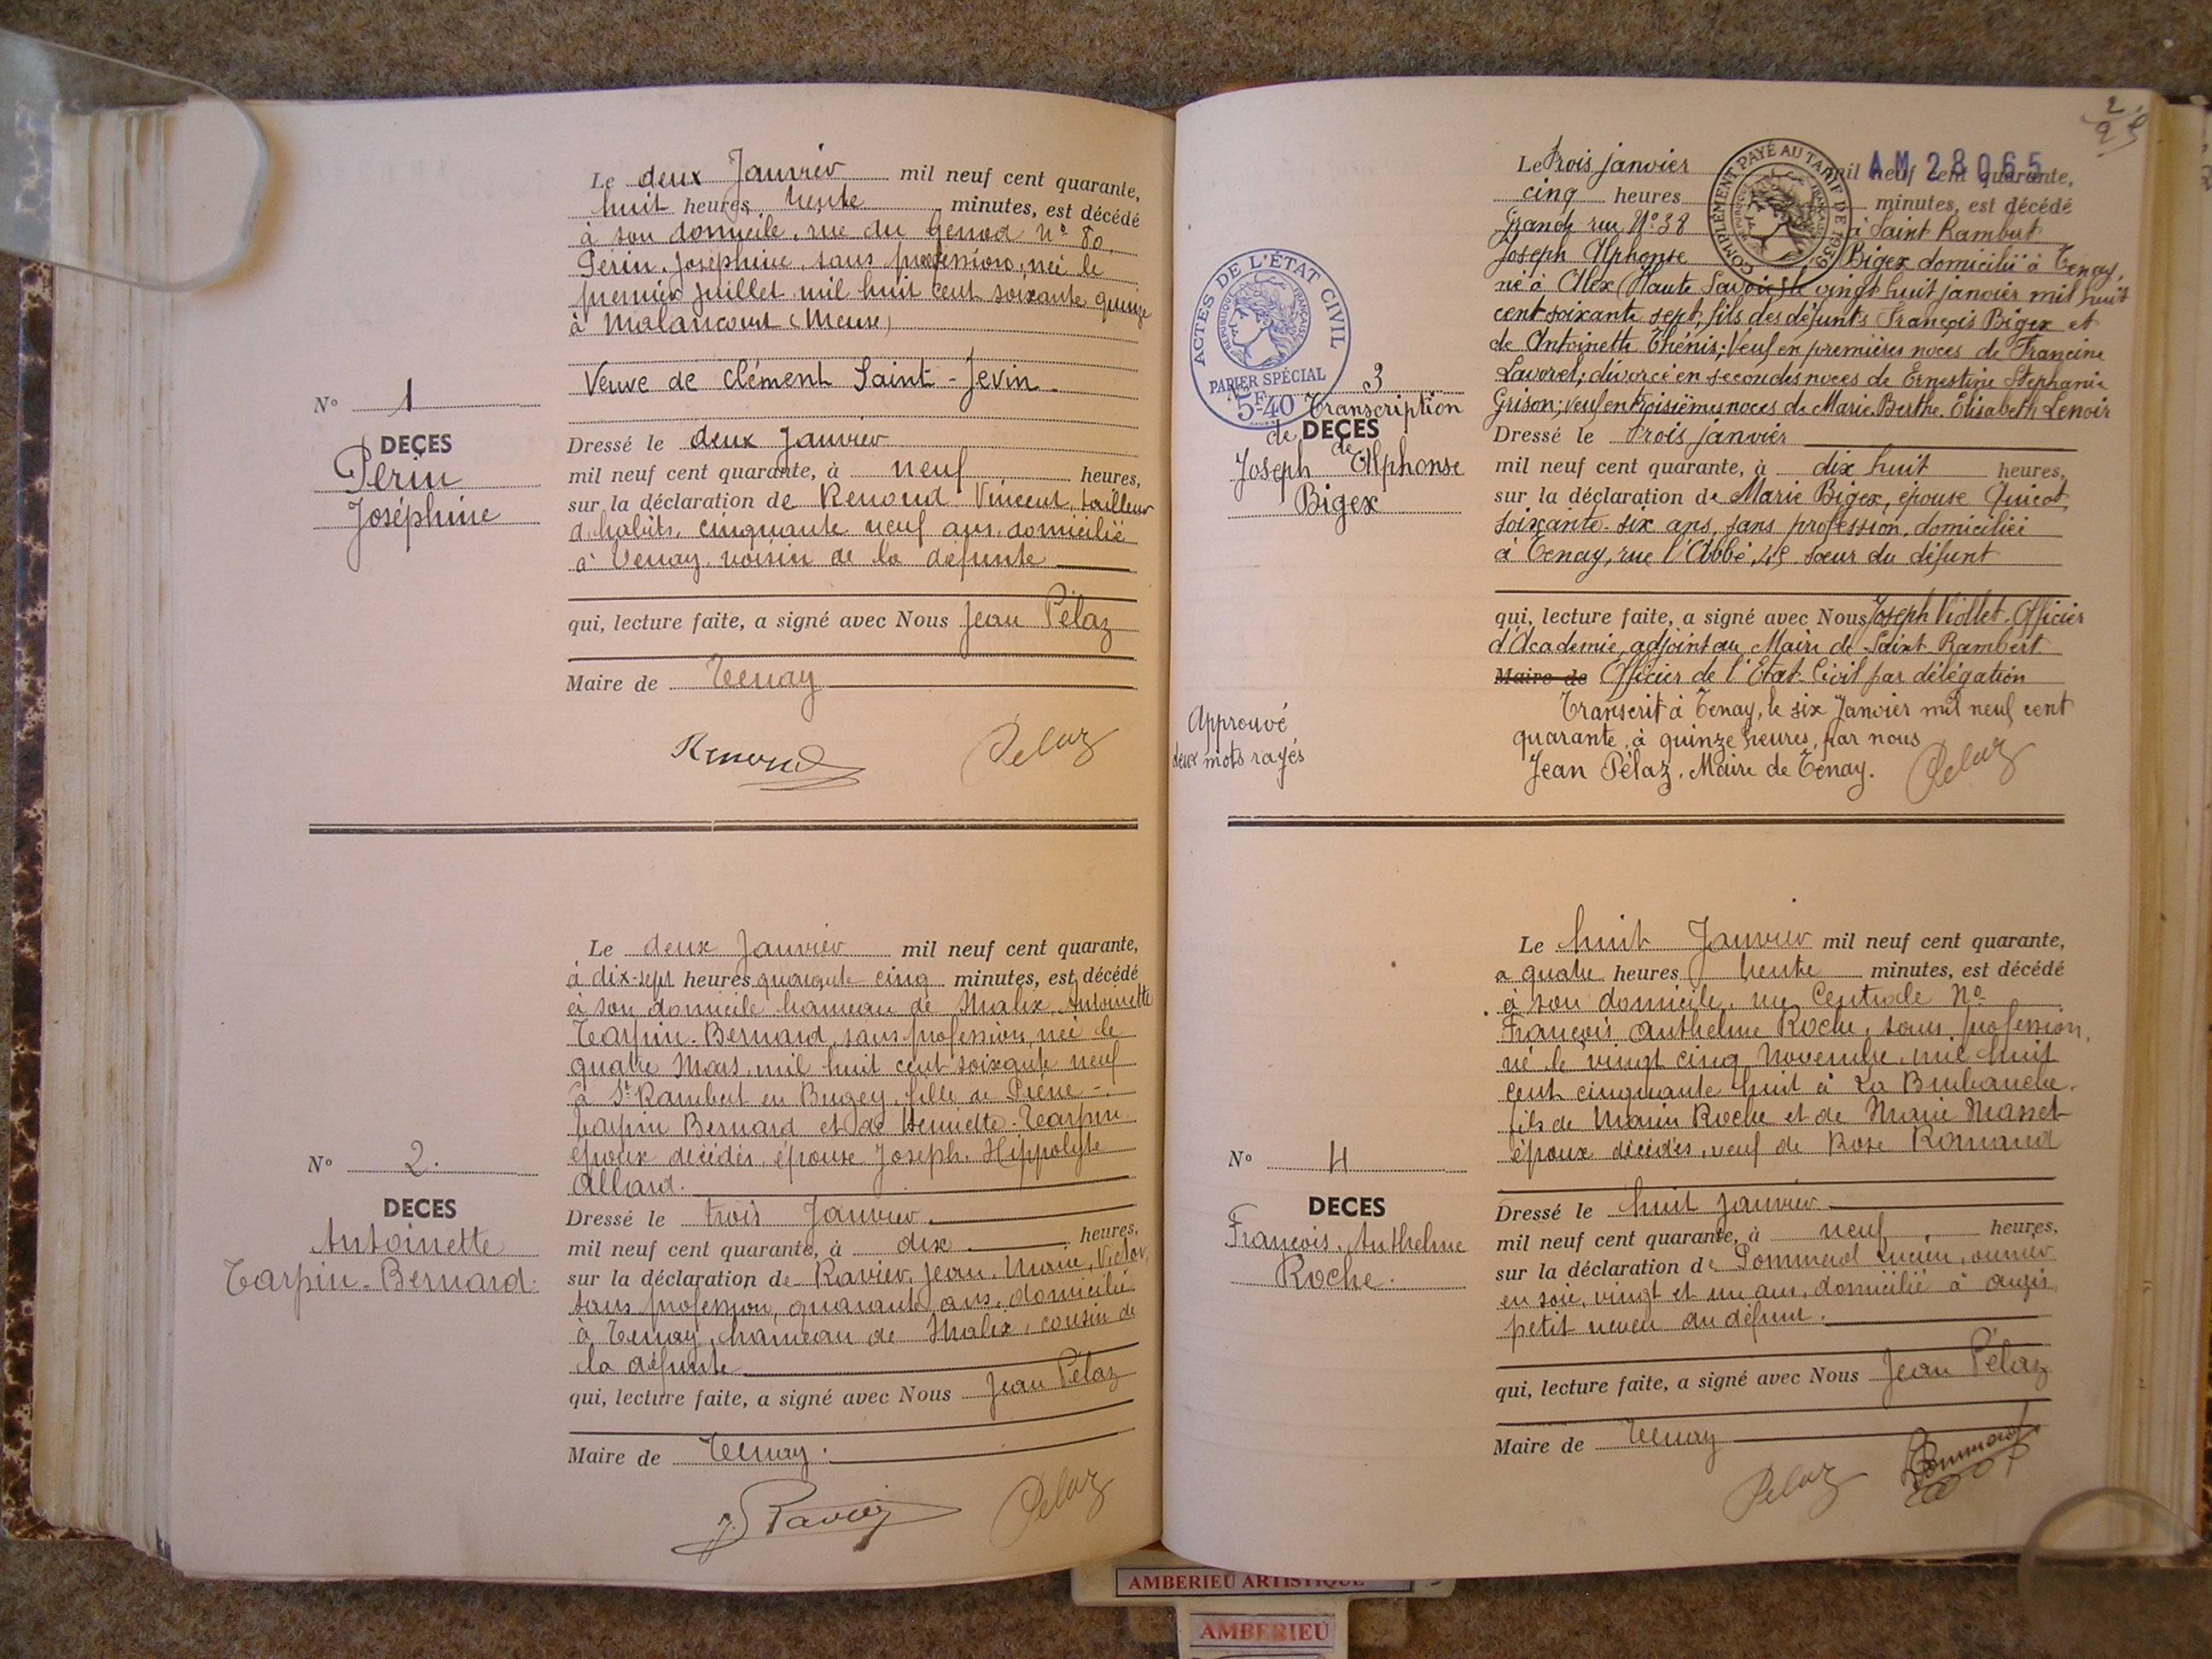 Le deux Janvier mil neuf cent quarante,
huit heures trente minutes, est décédé
à son domicile, rue du Genod n° 80
Périn Joséphine, sans profession, née le
premier Juillet mil huit cent soixante quinze
à Malancourt (Meuse)
Veuve de Clément Saint-Jevin
N° 1
DECES
Périn
Joséphine
Dressé le deux Janvier
mil neuf cent quarante, à neuf heures,
sur la déclaration de Renoud Vincent, tailleur
d'habits, cinquante neuf ans, domicilié
à Tenay, voisin de la défunte
qui, lecture faite, a signé avec Nous Jean Pélaz
Maire de Tenay
Renoud Pelaz
Le deux Janvier mil neuf cent quarante,
à dix-sept heures quarante cinq minutes, est décédé
à son domicile hameau de Malix, Antoinette
Tarpin-Bernard, sans profession, née le
quatre Mars mil huit cent soixante neuf
à St Rambert en Bugey, fille de Pierre
Tarpin Bernard et de Henriette Tarpin
époux décédés, épouse Joseph, Hippolyte
Alliard.
N° 2.
DECES
Antoinette
Tarpin-Bernard.
Dressé le trois Janvier
mil neuf cent quarante, à dix heures,
sur la déclaration de Ravier, Jean, Marie, Victor,
sans profession, quarante ans, domicilié
à Tenay, hameau de Malix, cousin de
la défunte
qui, lecture faite, a signé avec Nous Jean Pélaz
Maire de Tenay.
J. Ravier Pelaz
2
AM 28065
COMPLÉMENT PAYÉ AU TARIF DE 1939
Le Trois janvier mil neuf cent quarante,
cinq heures minutes, est décédé
Grande rue N° 38 à Saint Rambert
Joseph Alphonse Bigex domicilié à Tenay,
né à Alex (Haute Savoie) le vingt huit janvier mil huit
cent soixante sept, fils des défunts François Bigex et
de Antoinette Thénis; Veuf en premières noces de Francine
Lavorel; divorcé en secondes noces de Ernestine Stephanie
Grison; veuf en troisièmes noces de Marie Berthe Élisabeth Lenoir
ACTES DE L'ÉTAT CIVIL
RÉPUBLIQUE FRANÇAISE
PAPIER SPÉCIAL
5F40
N° 3
Transcription
de DECES
de
Joseph Alphonse
Bigex
Dressé le trois janvier
mil neuf cent quarante, à dix huit heures,
sur la déclaration de Marie Bigex, épouse Quicot,
soixante-six ans, sans profession, domiciliée
à Tenay, rue l'Abbé, 49 sœur du défunt
qui, lecture faite, a signé avec Nous Joseph Viollet, Officier
d'Academie, adjoint au Maire de Saint Rambert
Maire de Officier de l'Etat-Civil par délégation
Transcrit à Tenay, le six Janvier mil neuf cent
quarante, à quinze heures, par nous
Jean Pélaz, Maire de Tenay. Pelaz
Approuvé
deux mots rayés
Le huit Janvier mil neuf cent quarante,
à quatre heures trente minutes, est décédé
à son domicile, rue Centrale N°
François Anthelme Roche, sans profession,
né le vingt cinq Novembre mil huit
cent cinquante huit à La Burbanche,
fils de Marin Roche et de Marie Masset
époux décédés, veuf de Rose Romand
N° 4
DECES
François, Anthelme
Roche.
Dressé le huit janvier
mil neuf cent quarante, à neuf heures,
sur la déclaration de Pommerol Lucien, ouvrier
en soie, vingt et un ans, domicilié à Argis,
petit neveu du défunt.
qui, lecture faite, a signé avec Nous Jean Pélaz
Maire de Tenay
Pelaz Pommerol
AMBERIEU ARTISTIQUE
AMBERIEU